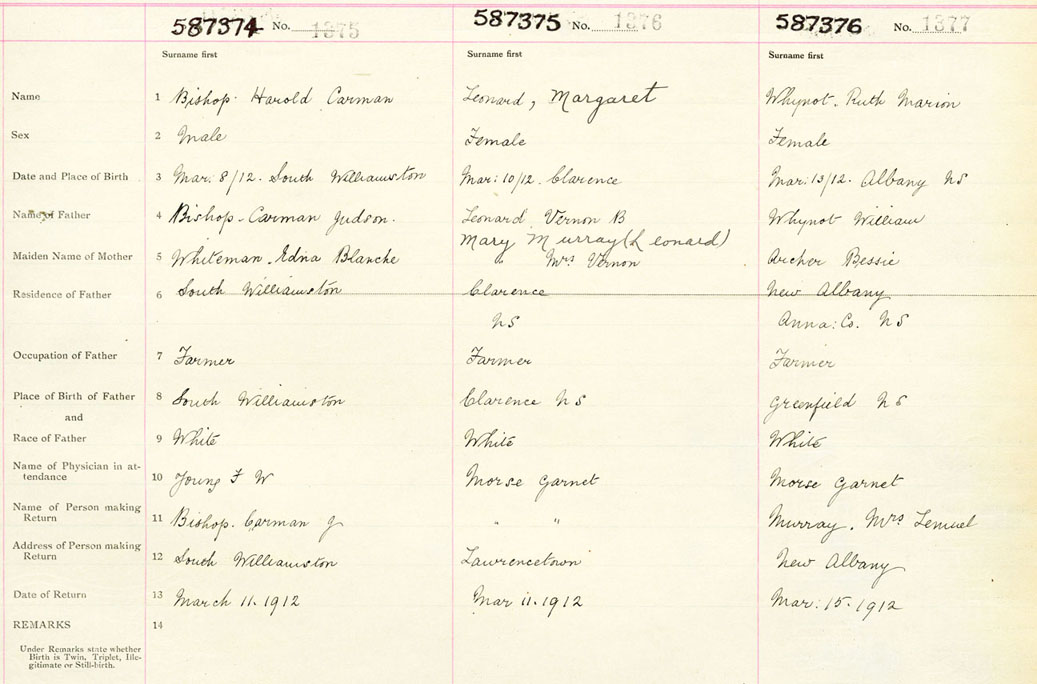 587374 No. 1375 587375 No. 1376 587376 No. 1377
Surname first Surname first Surname first
Name 1 Bishop. Harold Carman Leonard, Margaret Whynot. Ruth Marion
Sex 2 Male Female Female
Date and Place of Birth 3 Mar: 8/12. South Williamston Mar: 10/12. Clarence Mar: 13/12. Albany NS
Name of Father 4 Bishop-Carman Judson. Leonard Vernon B Whynot William
Mary Murray (Leonard)
Maiden Name of Mother 5 Whiteman. Edna Blanche Mrs Vernon Archer Bessie
Residence of Father 6 South Williamston Clarence New Albany
NS Anna: Co. NS
Occupation of Father 7 Farmer Farmer Farmer
Place of Birth of Father 8 South Williamston Clarence NS Greenfield NS
and
Race of Father 9 White White White
Name of Physician in at-
tendance 10 Young F W Morse Garnet Morse Garnet
Name of Person making
Return 11 Bishop. Carman J " " Murray, Mrs Lemuel
Address of Person making
Return 12 South Williamston Lawrencetown New Albany
Date of Return 13 March 11. 1912 Mar 11. 1912 Mar: 15. 1912
REMARKS 14
Under Remarks state whether
Birth is Twin, Triplet, Ille-
gitimate or Still-birth.